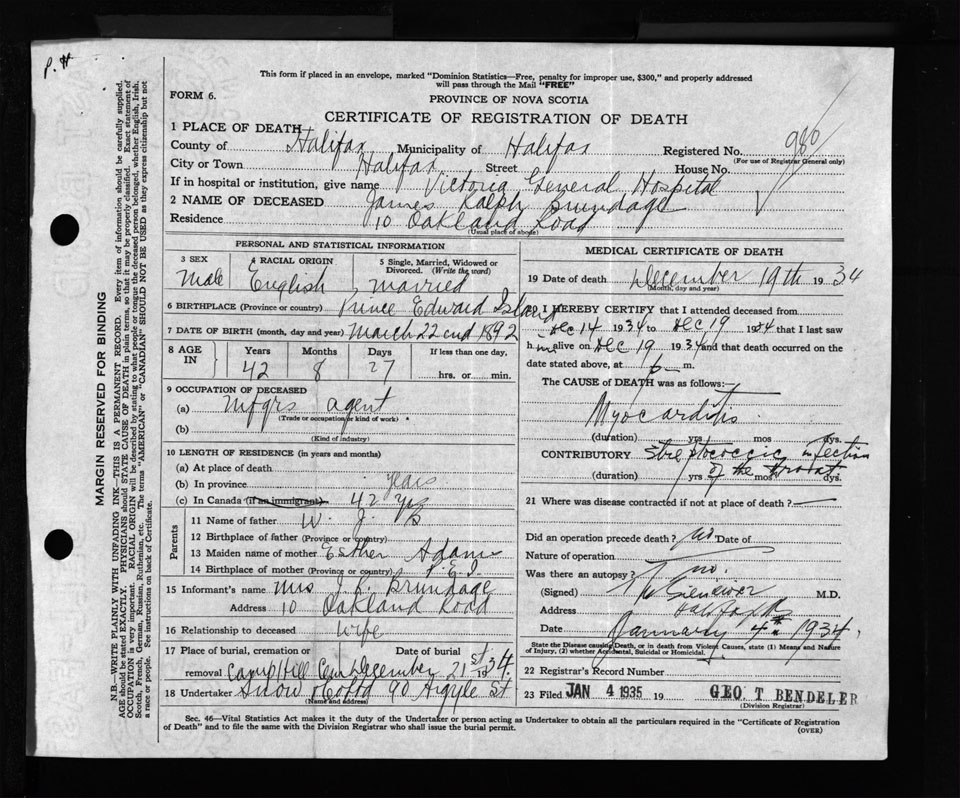 P. H
This form if placed in an envelope, marked "Dominion Statistics—Free, penalty for improper use, $300," and properly addressed
will pass through the Mail "FREE"
FORM 6.
PROVINCE OF NOVA SCOTIA
CERTIFICATE OF REGISTRATION OF DEATH
1 PLACE OF DEATH
County of Halifax Municipality of Halifax Registered No. 980
(For use of Registrar General only)
City or Town Halifax Street House No.
If in hospital or institution, give name Victoria General Hospital
2 NAME OF DECEASED James Ralph Brundage
Residence 10 Oakland Road
(Usual place of abode)
PERSONAL AND STATISTICAL INFORMATION
3 SEX Male
4 RACIAL ORIGIN English
5 Single, Married, Widowed or Divorced. (Write the word) married
6 BIRTHPLACE (Province or country) Prince Edward Island
7 DATE OF BIRTH (month, day and year) March 22 end 1892
8 AGE IN Years 42 Months 8 Days 27 If less than one day, hrs. or min.
9 OCCUPATION OF DECEASED
(a) Mfgrs agent
(Trade or occupation or kind of work)
(b)
(Kind of industry)
10 LENGTH OF RESIDENCE (in years and months)
(a) At place of death
(b) In province years
(c) In Canada (if an immigrant) 42 yrs
Parents
11 Name of father W. J. B
12 Birthplace of father (Province or country)
13 Maiden name of mother Esther Adams
14 Birthplace of mother (Province or country) P.E.I.
15 Informant's name Mrs J. R. Brundage
Address 10 Oakland Road
16 Relationship to deceased wife
17 Place of burial, cremation or removal Camp Hill Cem Date of burial December 21st 1934.
18 Undertaker Snow 90 Argyle St.
(Name and address)
MEDICAL CERTIFICATE OF DEATH
19 Date of death December 19th 1934
(Month, day and year)
20 I HEREBY CERTIFY that I attended deceased from
Dec 14 1934 to Dec 19 1934 that I last saw
him alive on Dec 19 1934 and that death occurred on the
date stated above, at 1 p m.
The CAUSE of DEATH was as follows:
Myocarditis.
(duration) yrs mos dys.
CONTRIBUTORY Streptococcic infection
of the throat
(duration) yrs mos dys.
21 Where was disease contracted if not at place of death?
Did an operation precede death? no Date of
Nature of operation
Was there an autopsy? no.
(Signed) M.D.
Address Halifax NS
Date January 4th 1934.
State the Disease causing Death, or in death from Violent Causes, state (1) Means and Nature
of Injury, (2) whether Accidental, Suicidal or Homicidal.
22 Registrar's Record Number
23 Filed JAN 4 1935 19 GEO. T BENDELER
(Division Registrar)
Sec. 46—Vital Statistics Act makes it the duty of the Undertaker or person acting as Undertaker to obtain all the particulars required in the "Certificate of Registration
of Death" and to file the same with the Division Registrar who shall issue the burial permit.
(OVER)
MARGIN RESERVED FOR BINDING
N.B.—WRITE PLAINLY WITH UNFADING INK—THIS IS A PERMANENT RECORD. Every item of information should be carefully supplied.
AGE should be stated EXACTLY. PHYSICIANS should STATE CAUSE OF DEATH in plain terms, so that it may be properly classified. Exact statement of
OCCUPATION is very important. RACIAL ORIGIN will be described by stating to what people or tongue the deceased person belonged, whether English, Irish,
Scotch, French, German, Russian, Ruthenian, etc. The terms "AMERICAN" or "CANADIAN" SHOULD NOT BE USED as they express citizenship but not
a race or people. See instructions on back of Certificate.